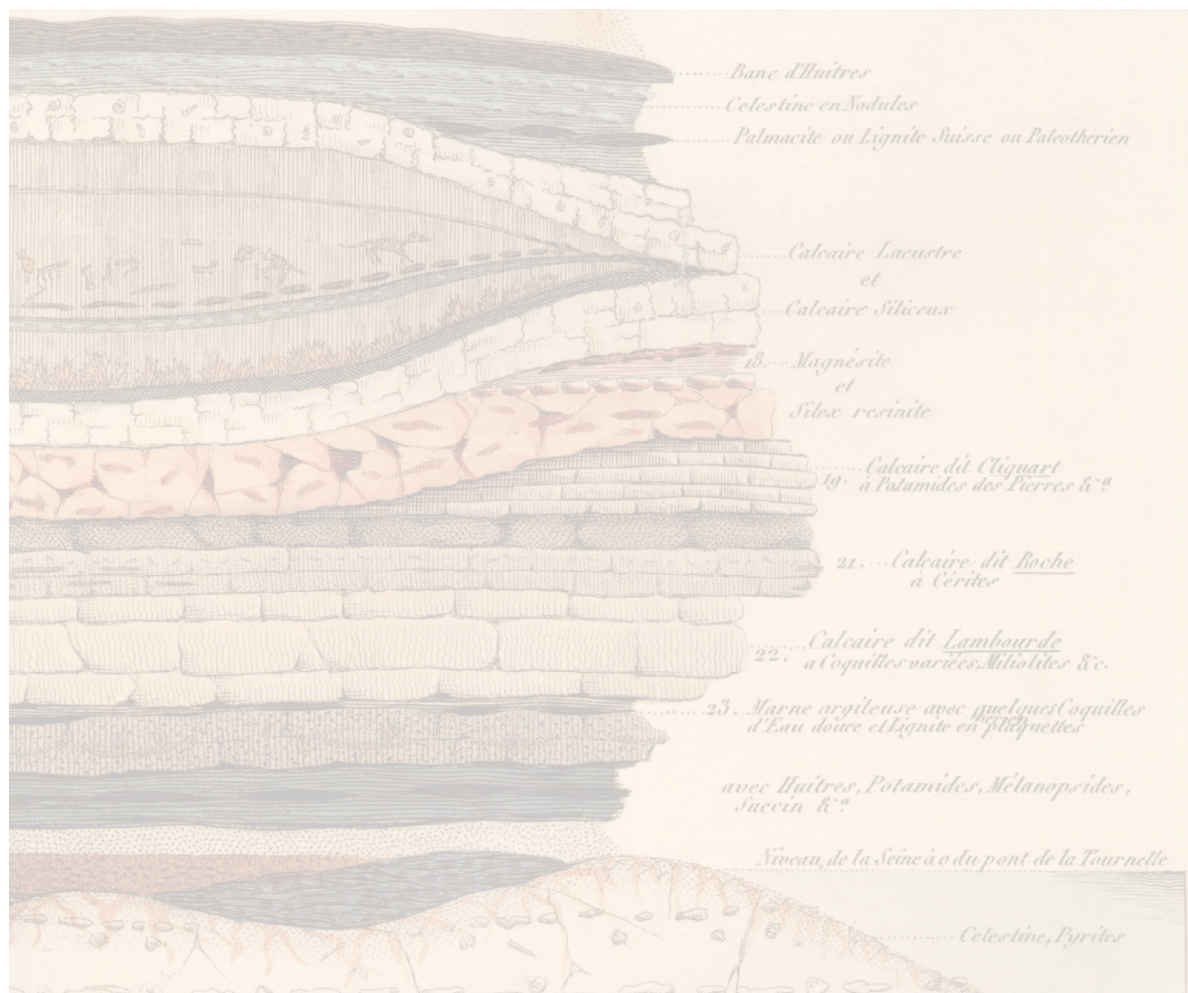 Banc d'Huitres
Celestine en Nodules
Palmacite ou Lignite Suisse ou Paleotherien
Calcaire Lacustre
et
Calcaire Siliceux
18. Magnésite
et
Silex resinite
Calcaire dit Cliquart
19. à Potamides des Pierres &.a
21. Calcaire dit Roche
à Cérites
Calcaire dit Lambourde
22. a Coquilles variées, Miliolites &c.
23. Marne argileuse avec quelques Coquilles
d'Eau douce et Lignite en plaquettes
avec Huitres, Potamides, Mélanopsides,
Succin &.a
Niveau de la Seine à o du pont de la Tournelle
Celestine, Pyrites